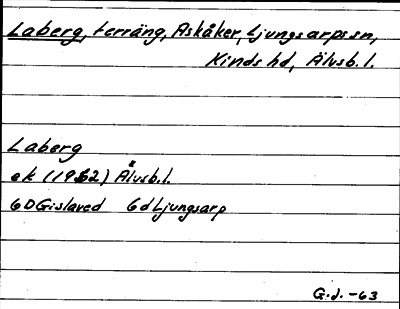 Laberg, terräng, Askåker, Ljungsarps sn,
Kinds hd, Älvsb. l.
Laberg
ek (1962) Älvsb. l.
6D Gislaved 6d Ljungsarp
G.J. -63